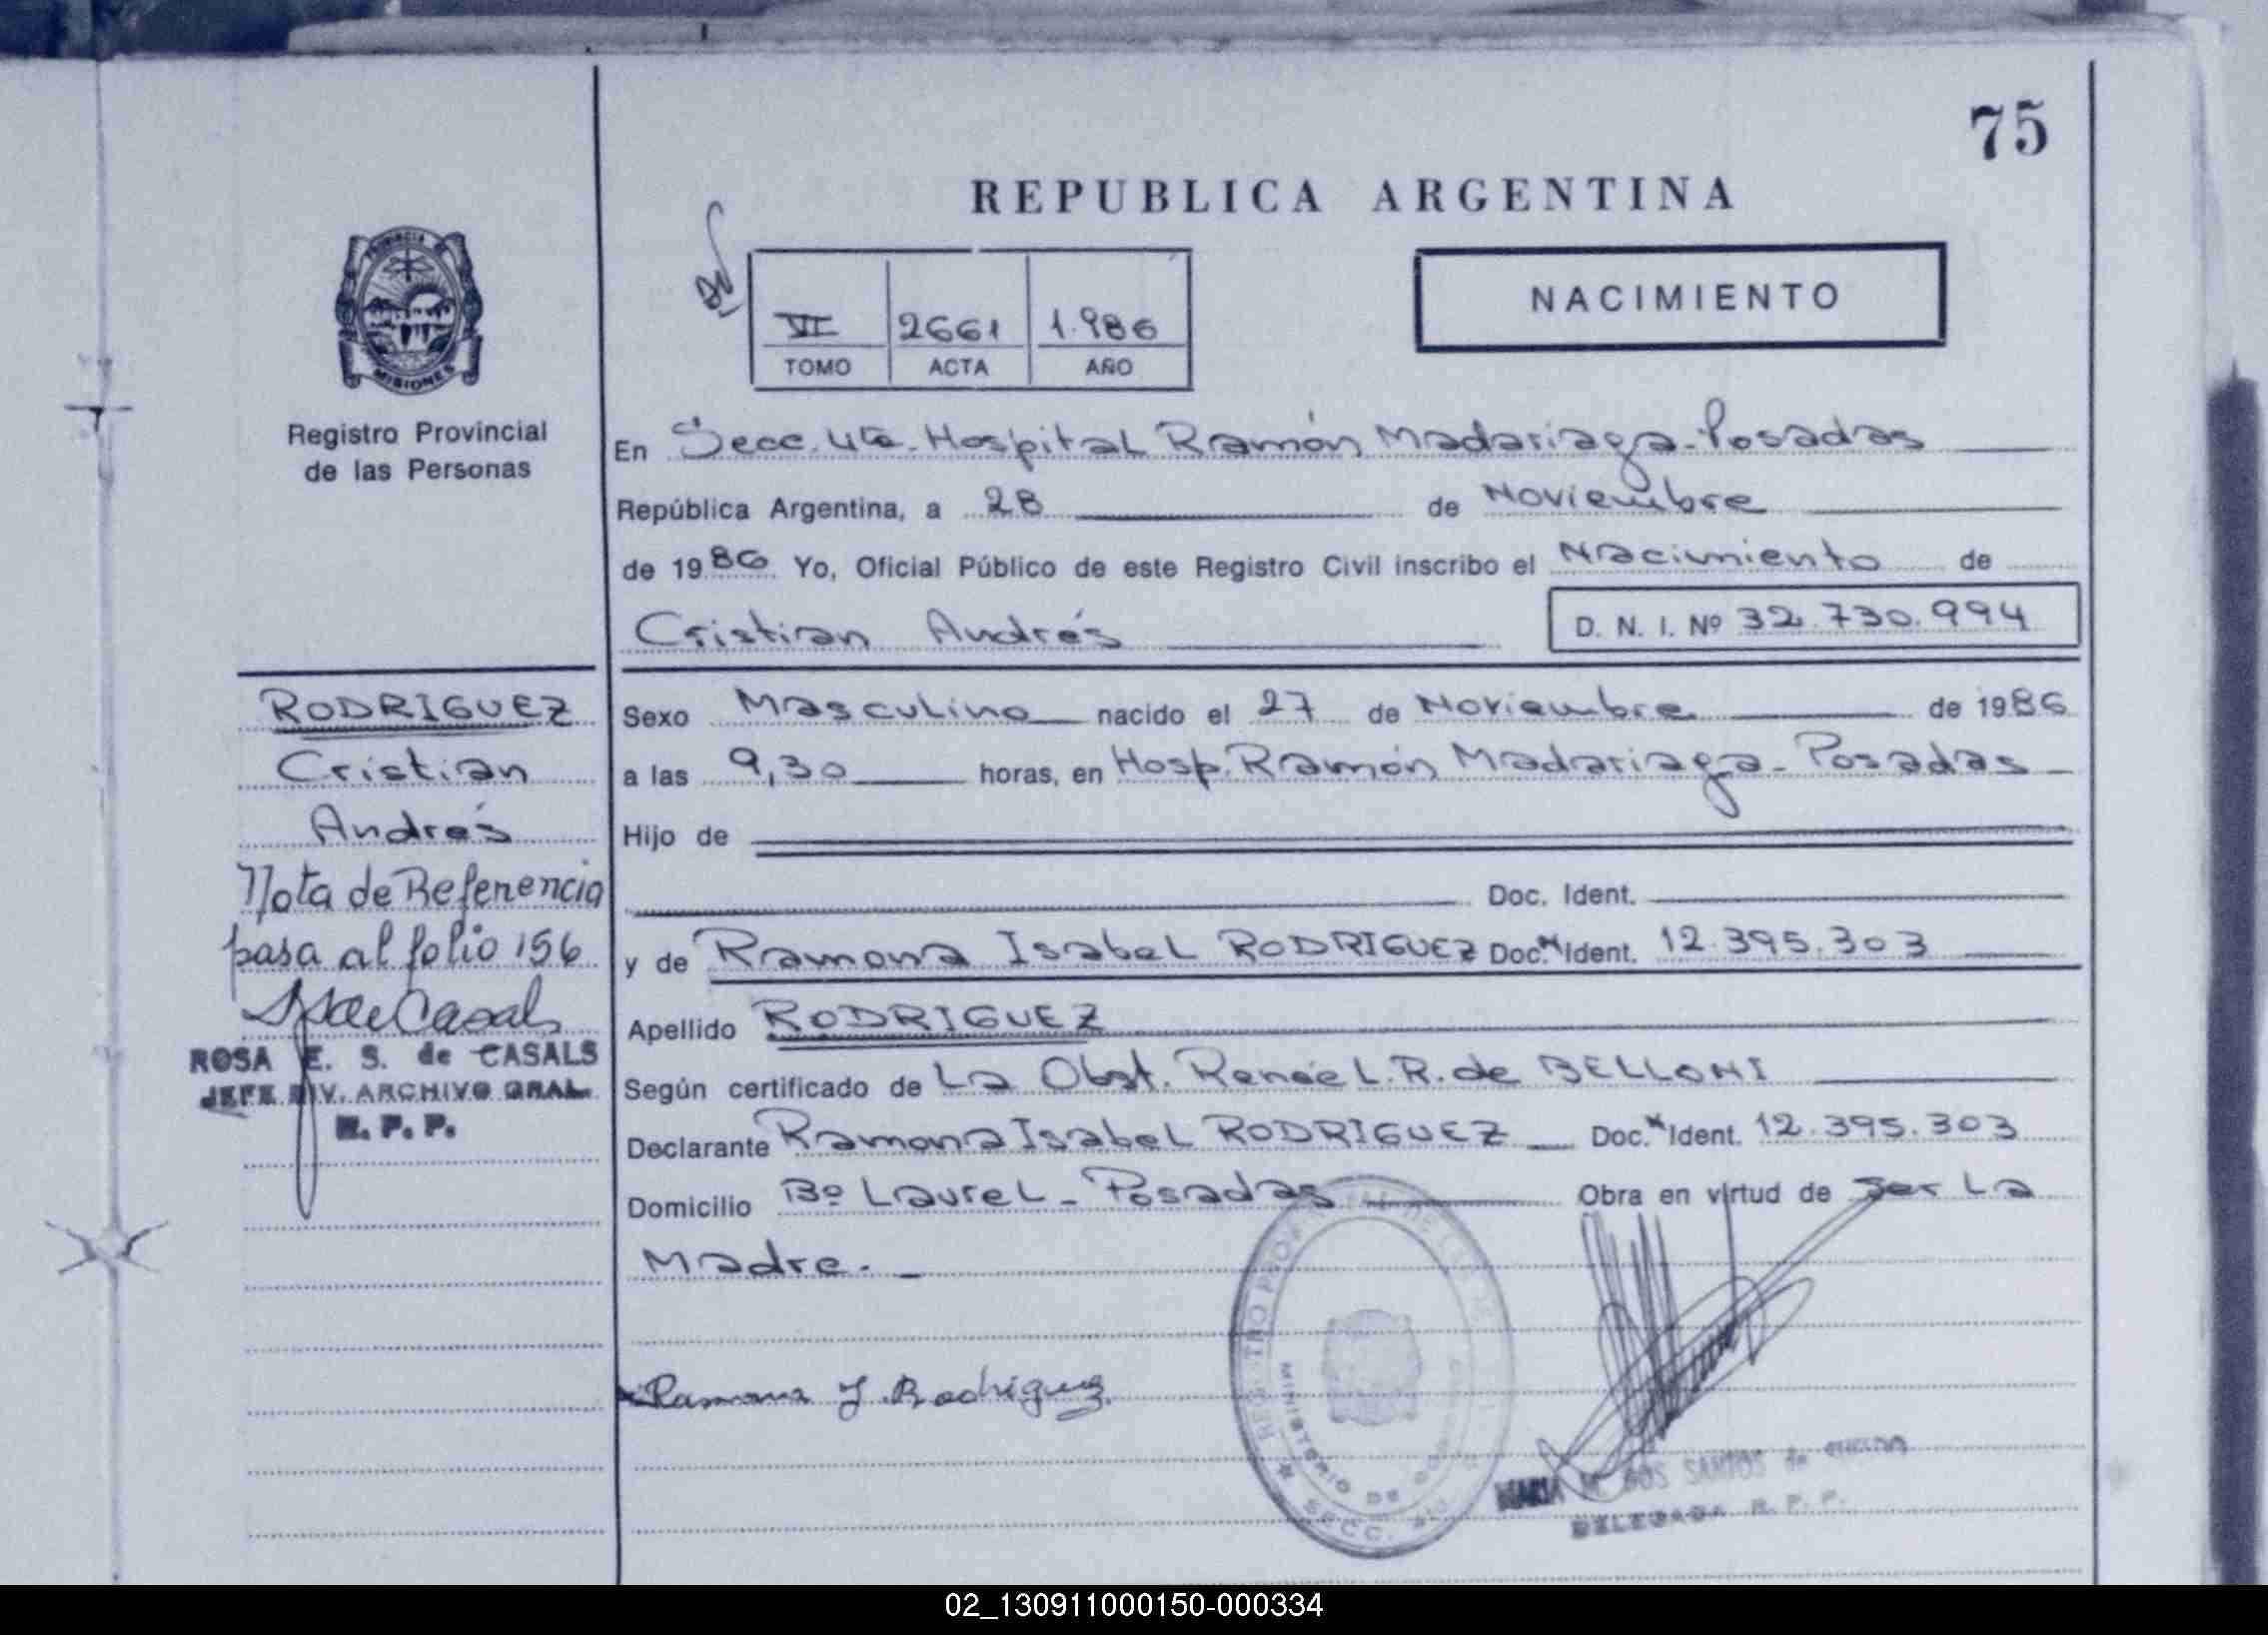 75
REPUBLICA ARGENTINA
NACIMIENTO
VI 2661 1.986
TOMO ACTA AÑO
PROVINCIA DE
MISIONES
Registro Provincial
de las Personas
En Secc. 4ta. Hospital Ramón Madariaga-Posadas
República Argentina, a 28 de Noviembre
de 1986 Yo, Oficial Público de este Registro Civil inscribo el Nacimiento de
Cristian Andrés
D. N. I. Nº 32.730.994
RODRIGUEZ
Cristian
Andrés
Nota de Referencia
pasa al folio 156
ROSA E. S. de CASALS
JEFE DIV. ARCHIVO GRAL.
R. P. P.
Sexo Masculino nacido el 27 de Noviembre de 1986
a las 9,30 horas, en Hosp. Ramón Madariaga - Posadas
Hijo de
Doc. Ident.
y de Ramona Isabel RODRIGUEZ Doc. Ident. 12.395.303
Apellido RODRIGUEZ
Según certificado de La Obst. Renée L. R. de BELLONI
Declarante Ramona Isabel RODRIGUEZ Doc. Ident. 12.395.303
Domicilio Bº Laurel - Posadas Obra en virtud de Ser La
Madre.
Ramona I. Rodriguez
MINISTERIO DE
SECC.
MARIA M. DOS SANTOS de
DELEGADA R. P. P.
02_130911000150-000334